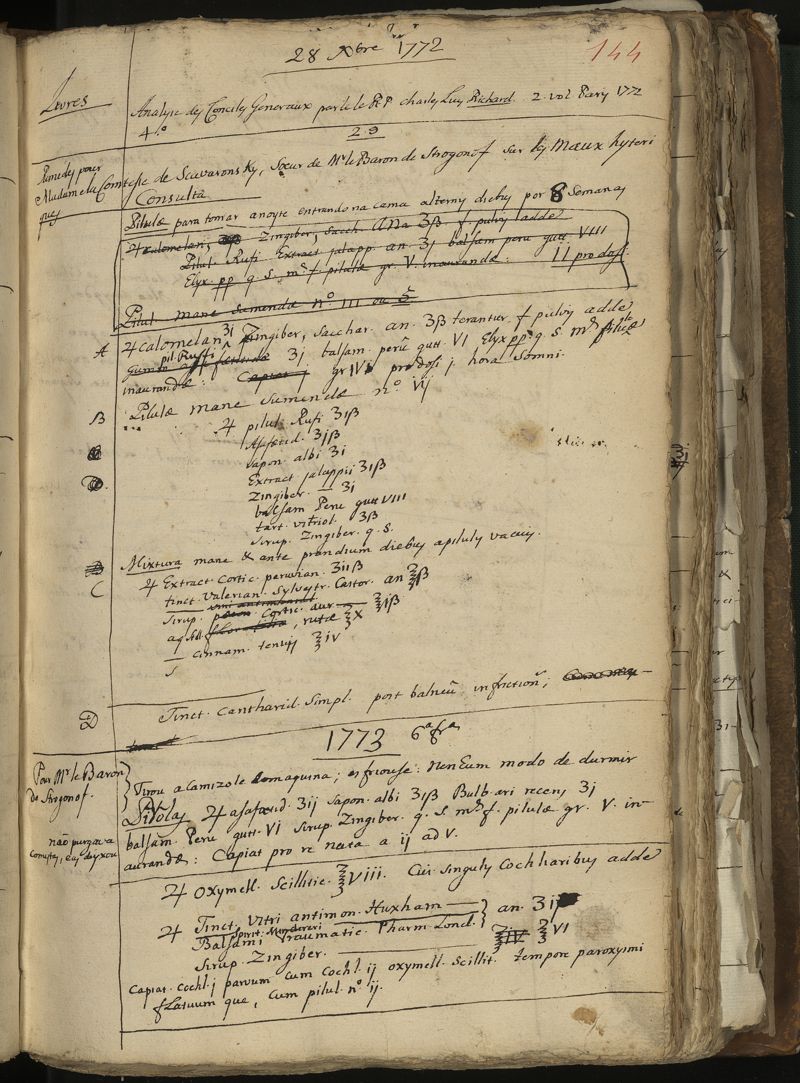 28 Xbre 1772
144
Livres
Analyse des Conciles Generaux par le R P charles Luiy Richard. 2. vol Pary 1772
4to
29
Remedes pour Madame la Comtesse de Scavaronsky, Sœur de Mr le Baron de Strogonof sur les Maux hyteri
ques
Consulta
Pilulæ para tomar anoyte entrando na cama alterny dieby por 8 Semanas
♃ calomelan, Zingiber, sacch. ana ʒß f. pulvis adde
Pilul. Rufi Extract jalapp. an. ʒj balsam peru gutt. VIII
Elyx. pp q. s. m. f. pilulæ gr. V. inaurandæ: II pro dosi
Pilul. mane sumendæ no III ou
A
♃ calomelan ʒi Zingiber, sacchar. an. ʒß terantur f pulvis adde
pil. Ruffi ʒj balsam. peru gutt. VI Elyx pp. q. s. m. f. pilulæ
inaurandæ: Capiat gr IV pro dosi j. hora somni.
B
Pilulæ mane sumendæ no. Vj
♃ pilul. Rufi ʒiß
Assfœtid. ʒjß
sapon. albi ʒi
Extract jalappii ʒiß
Zingiber. — ʒi
balsam Peru gutt VIII
tart. vitriol. ʒß
sirup. Zingiber. q. s.
C
Mixtura mane & ante prandium dieby a piluly vacuy.
♃ Extract. Cortic. peruvian. ʒiiß
tinct. Valerian. sylvestr. Castor. an ʒß
Sirup. Cortic. aur — ℥iß
aq. still. , rutæ ℥X
— cinnam. tenuis ℥iV
S
D
Tinct. Cantharid. Simpl. post balneu infriction;
1773 6a fra
8
Pour Mr le Baron
de Strogonof.
Tirou a Camizole de maquina; esfriouse: nenEum modo de durmir
não purgava
Comystas, e as deyxou
♃ asafœtid. ʒij sapon. albi ʒiß Bulb. ari recens ʒj
balsam. Peru gutt. VI sirup. Zingiber. q. s. m. f. pilulæ gr. V. in-
aurandæ: Capiat pro re nata a ij ad V.
♃ Oxymell. Scillitic. ℥Viii. Cui singuly Cochlaribus adde
♃ Tinct. Vitri antimon. Huxham —
Spirit. Mindereri
Balsami Traumatic. Pharm. Lond. } an. ʒij
Sirup. Zingiber. — ℥VI
Capiat. Cochl. j parvum cum Cochl. ij oxymell. scillit. tempore paroxysmi
flatuum que, cum pilul. no. ij.